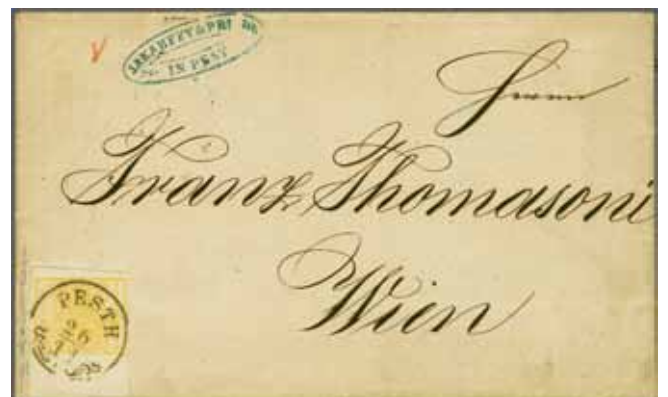 IN PEST
Herrn
Franz Thomasoni
Wien
PESTH